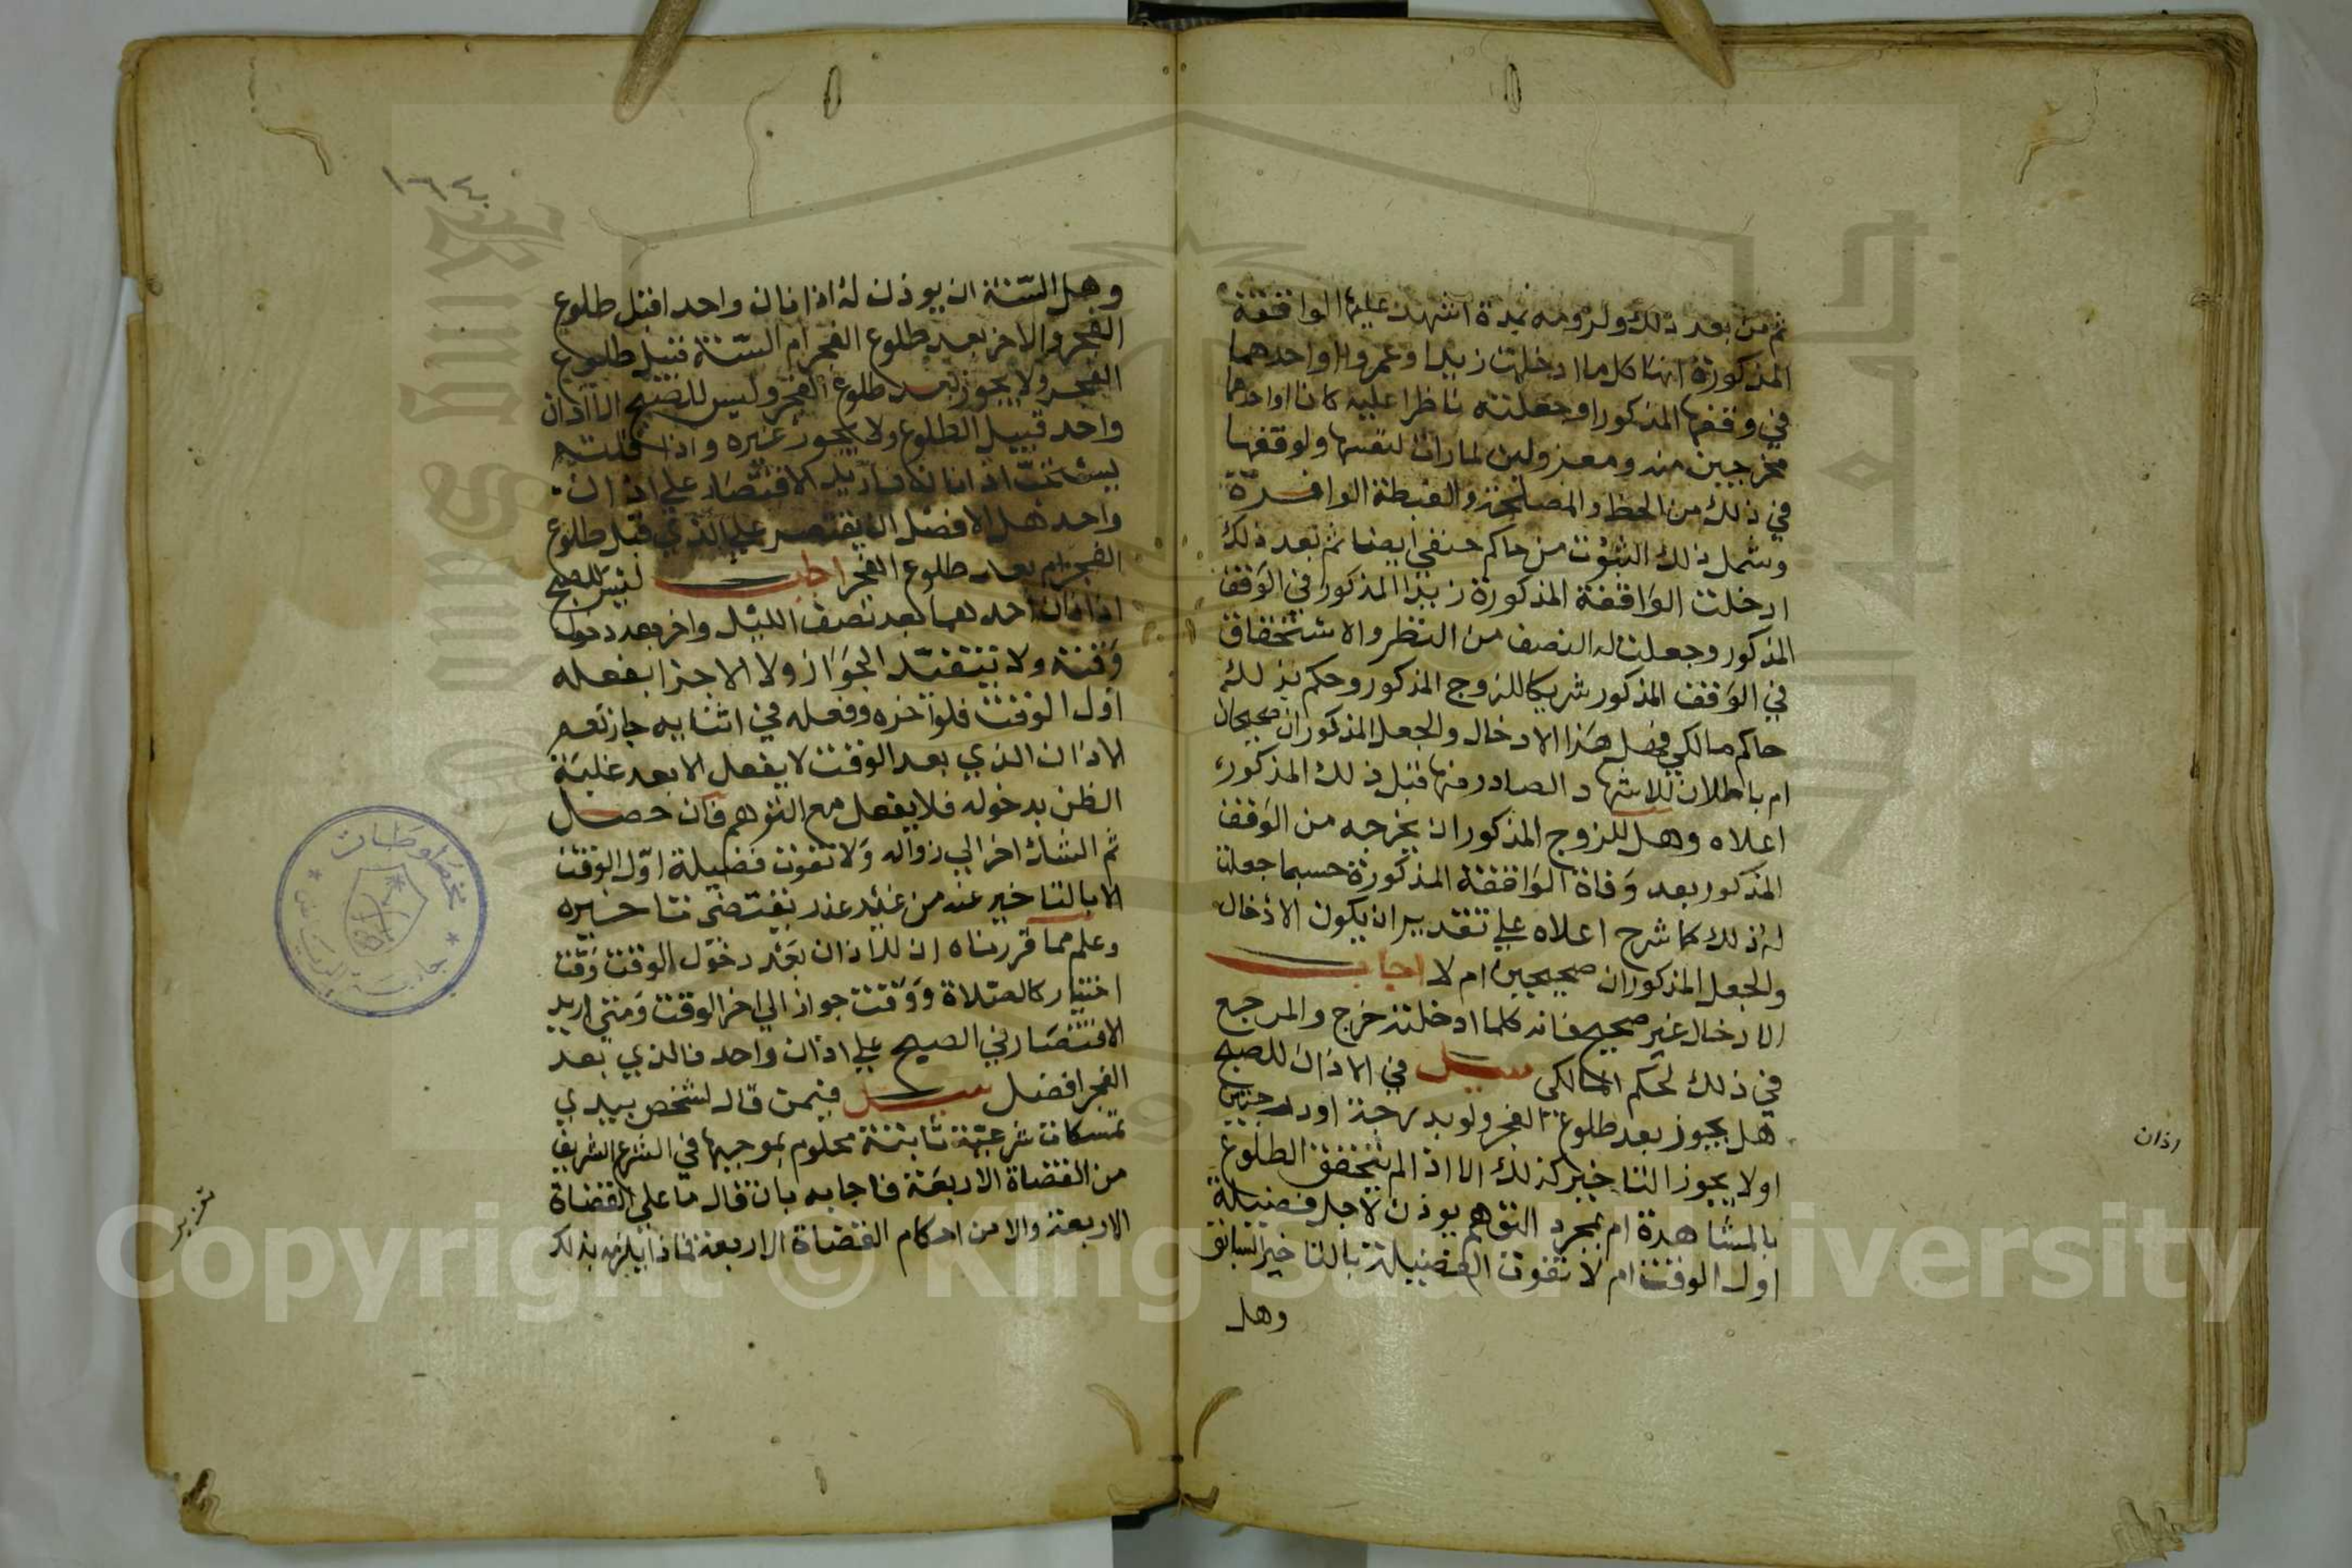 ثم من بعد ذلك ولزومه بمدة اشهدت عليها الواقفة
المذكورة انها كلما ادخلت زيدا وعمروا او احدهما
في وقفها المذكور او جعلته ناظرا عليه كانا او احدهما
مخرجين منه ومعزولين لما رات لنفسها ولوقفها
في ذلك من الحظ والمصلحة والغبطة الوافرة
وشمل ذلك الثبوت من حاكم حنفي ايضا ثم بعد ذلك
ادخلت الواقفة المذكورة زيدا المذكور في الوقف
المذكور وجعلت له النصف من النظر والاستحقاق
في الوقف المذكور شريكا للزوج المذكور وحكم بذلك
حاكم مالكي فهل هذا الادخال والجعل المذكوران صحيحان
ام باطلان للاشهاد الصادر منها قبل ذلك المذكور
اعلاه وهل للزوج المذكور ان يخرجه من الوقف
المذكور بعد وفاة الواقفة المذكورة حسبما جعلت
له ذلك كما شرح اعلاه علي تقدير ان يكون الادخال
والجعل المذكوران صحيحين ام لا اجاب
الادخال غير صحيح فانه كلما ادخلته خرج والمرجع
في ذلك لحكم المالكي سيل في الاذان للصبح
هل يجوز بعد طلوع الفجر ولو بدرجة او درجتين
اولا يجوز التاخير كذلك الا اذا لم يتحقق الطلوع
بالمشاهدة ام بمجرد التوهم يوذن لاجل فضيلة
اول الوقت ام لا تفوت الفضيلة بالتاخير السابق
وهل
اذان
١٦٤
وهل السنة ان يوذن له اذانان واحد قبل طلوع
الفجر والاخر بعد طلوع الفجر ام السنة قبيل طلوع
الفجر ولا يجوز بعد طلوع الفجر وليس للصبح الا اذان
واحد قبيل الطلوع ولا يجوز غيره واذا قلتم
بسنية اذانان فاريد الاقتصار علي اذان
واحد فهل الافضل ان يقتصر علي الذي قبل طلوع
الفجر ام بعد طلوع الفجر اجاب ليس للصبح
اذانان احدهما بعد نصف الليل واخر بعد دخول
وقته ولا يتقيد الجواز ولا الاجزا بفعله
اول الوقت فلو اخره وفعله في اثنايه جاز نعم
الاذان الذي بعد الوقت لا يفعل الا بعد غلبة
الظن بدخوله فلا يفعل مع التوهم فان حصل
ثم الشك اخر الي زواله ولا تفوت فضيلة اول الوقت
الا بالتاخير عنه من غير عذر يقتضي تاخيره
وعلم مما قررناه ان للاذان بعد دخول الوقت وقت
اختيار كالصلاة ووقت جواز الي اخر الوقت ومتي اريد
الاقتصار في الصبح علي اذان واحد فالذي بعد
الفجر افضل سيل فيمن قال لشخص بيدي
تمسكات شرعية ثابتة محكوم بموجبها في الشرع الشريف
من القضاة الاربعة فاجابه بان قال ما علي القضاة
الاربعة ولا من احكام القضاة الاربعة فماذا يلزمه بذلك
مخطوطات
Copyright © King Saud University